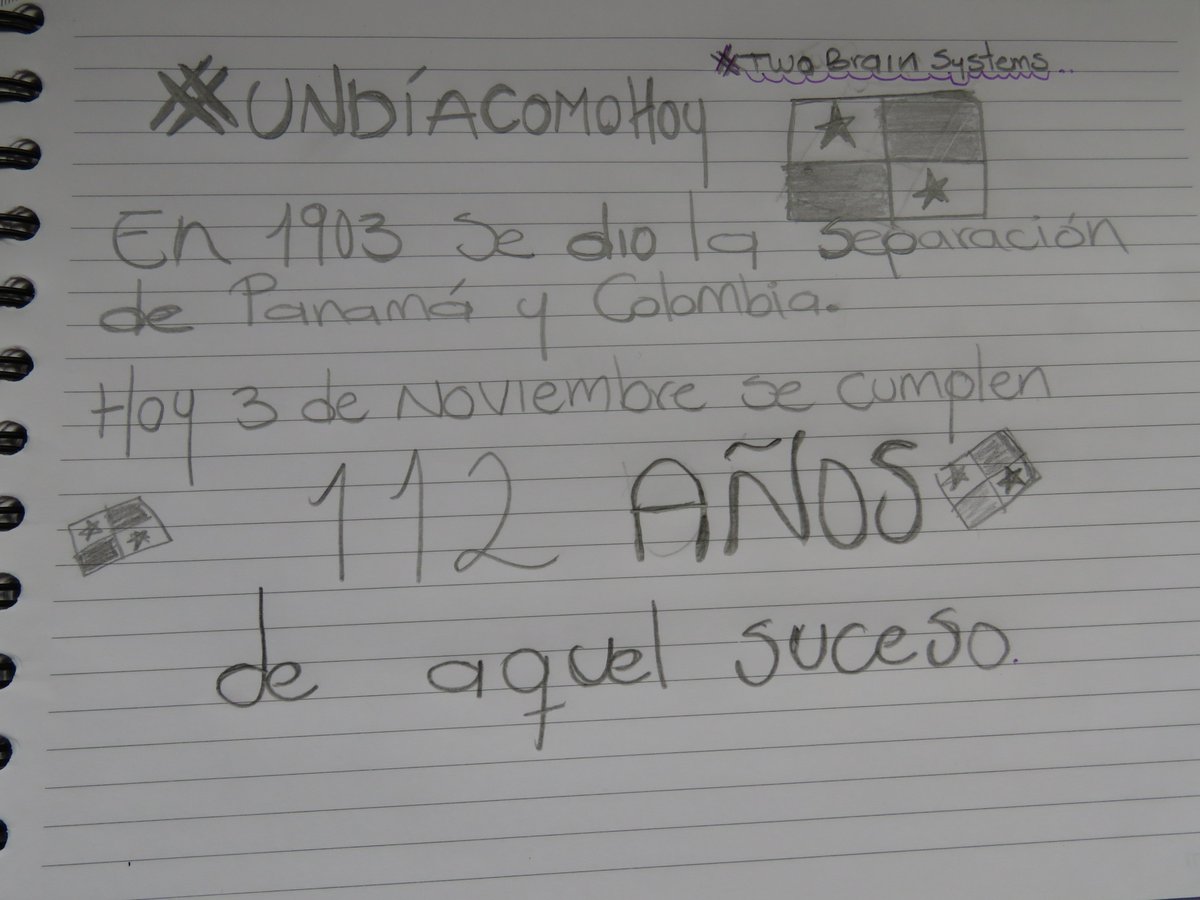 #Two Brain Systems..
#UNDÍACOMOHoy
En 1903 se dio la separación
de Panamá y Colombia.
Hoy 3 de Noviembre se cumplen
112 AÑOS
de aquel suceso.